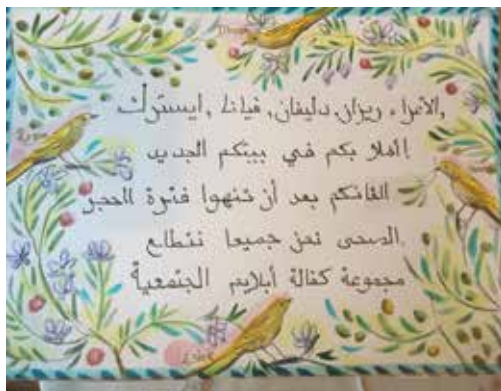 الأمراء ريزان, دليفان, فيانا, ايسترك,
!أهلا بكم في بيتكم الجديد
القائكم بعد أن تنهوا فترة الحجر
.الصحى نحن جميعا نتطلع
مجموعة كفالة أبلايم الجتمعية